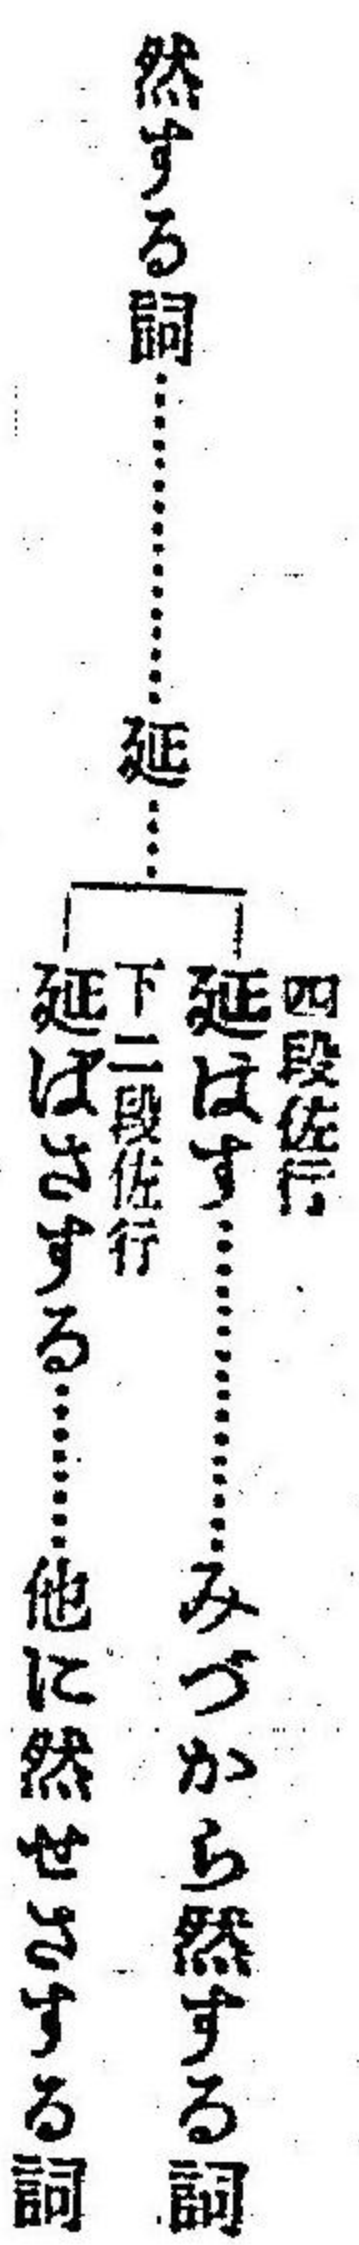 然する詞…………延……
四段佐行
延ばす…………みづから然する詞
下二段佐行
延ばさする……他に然せさする詞